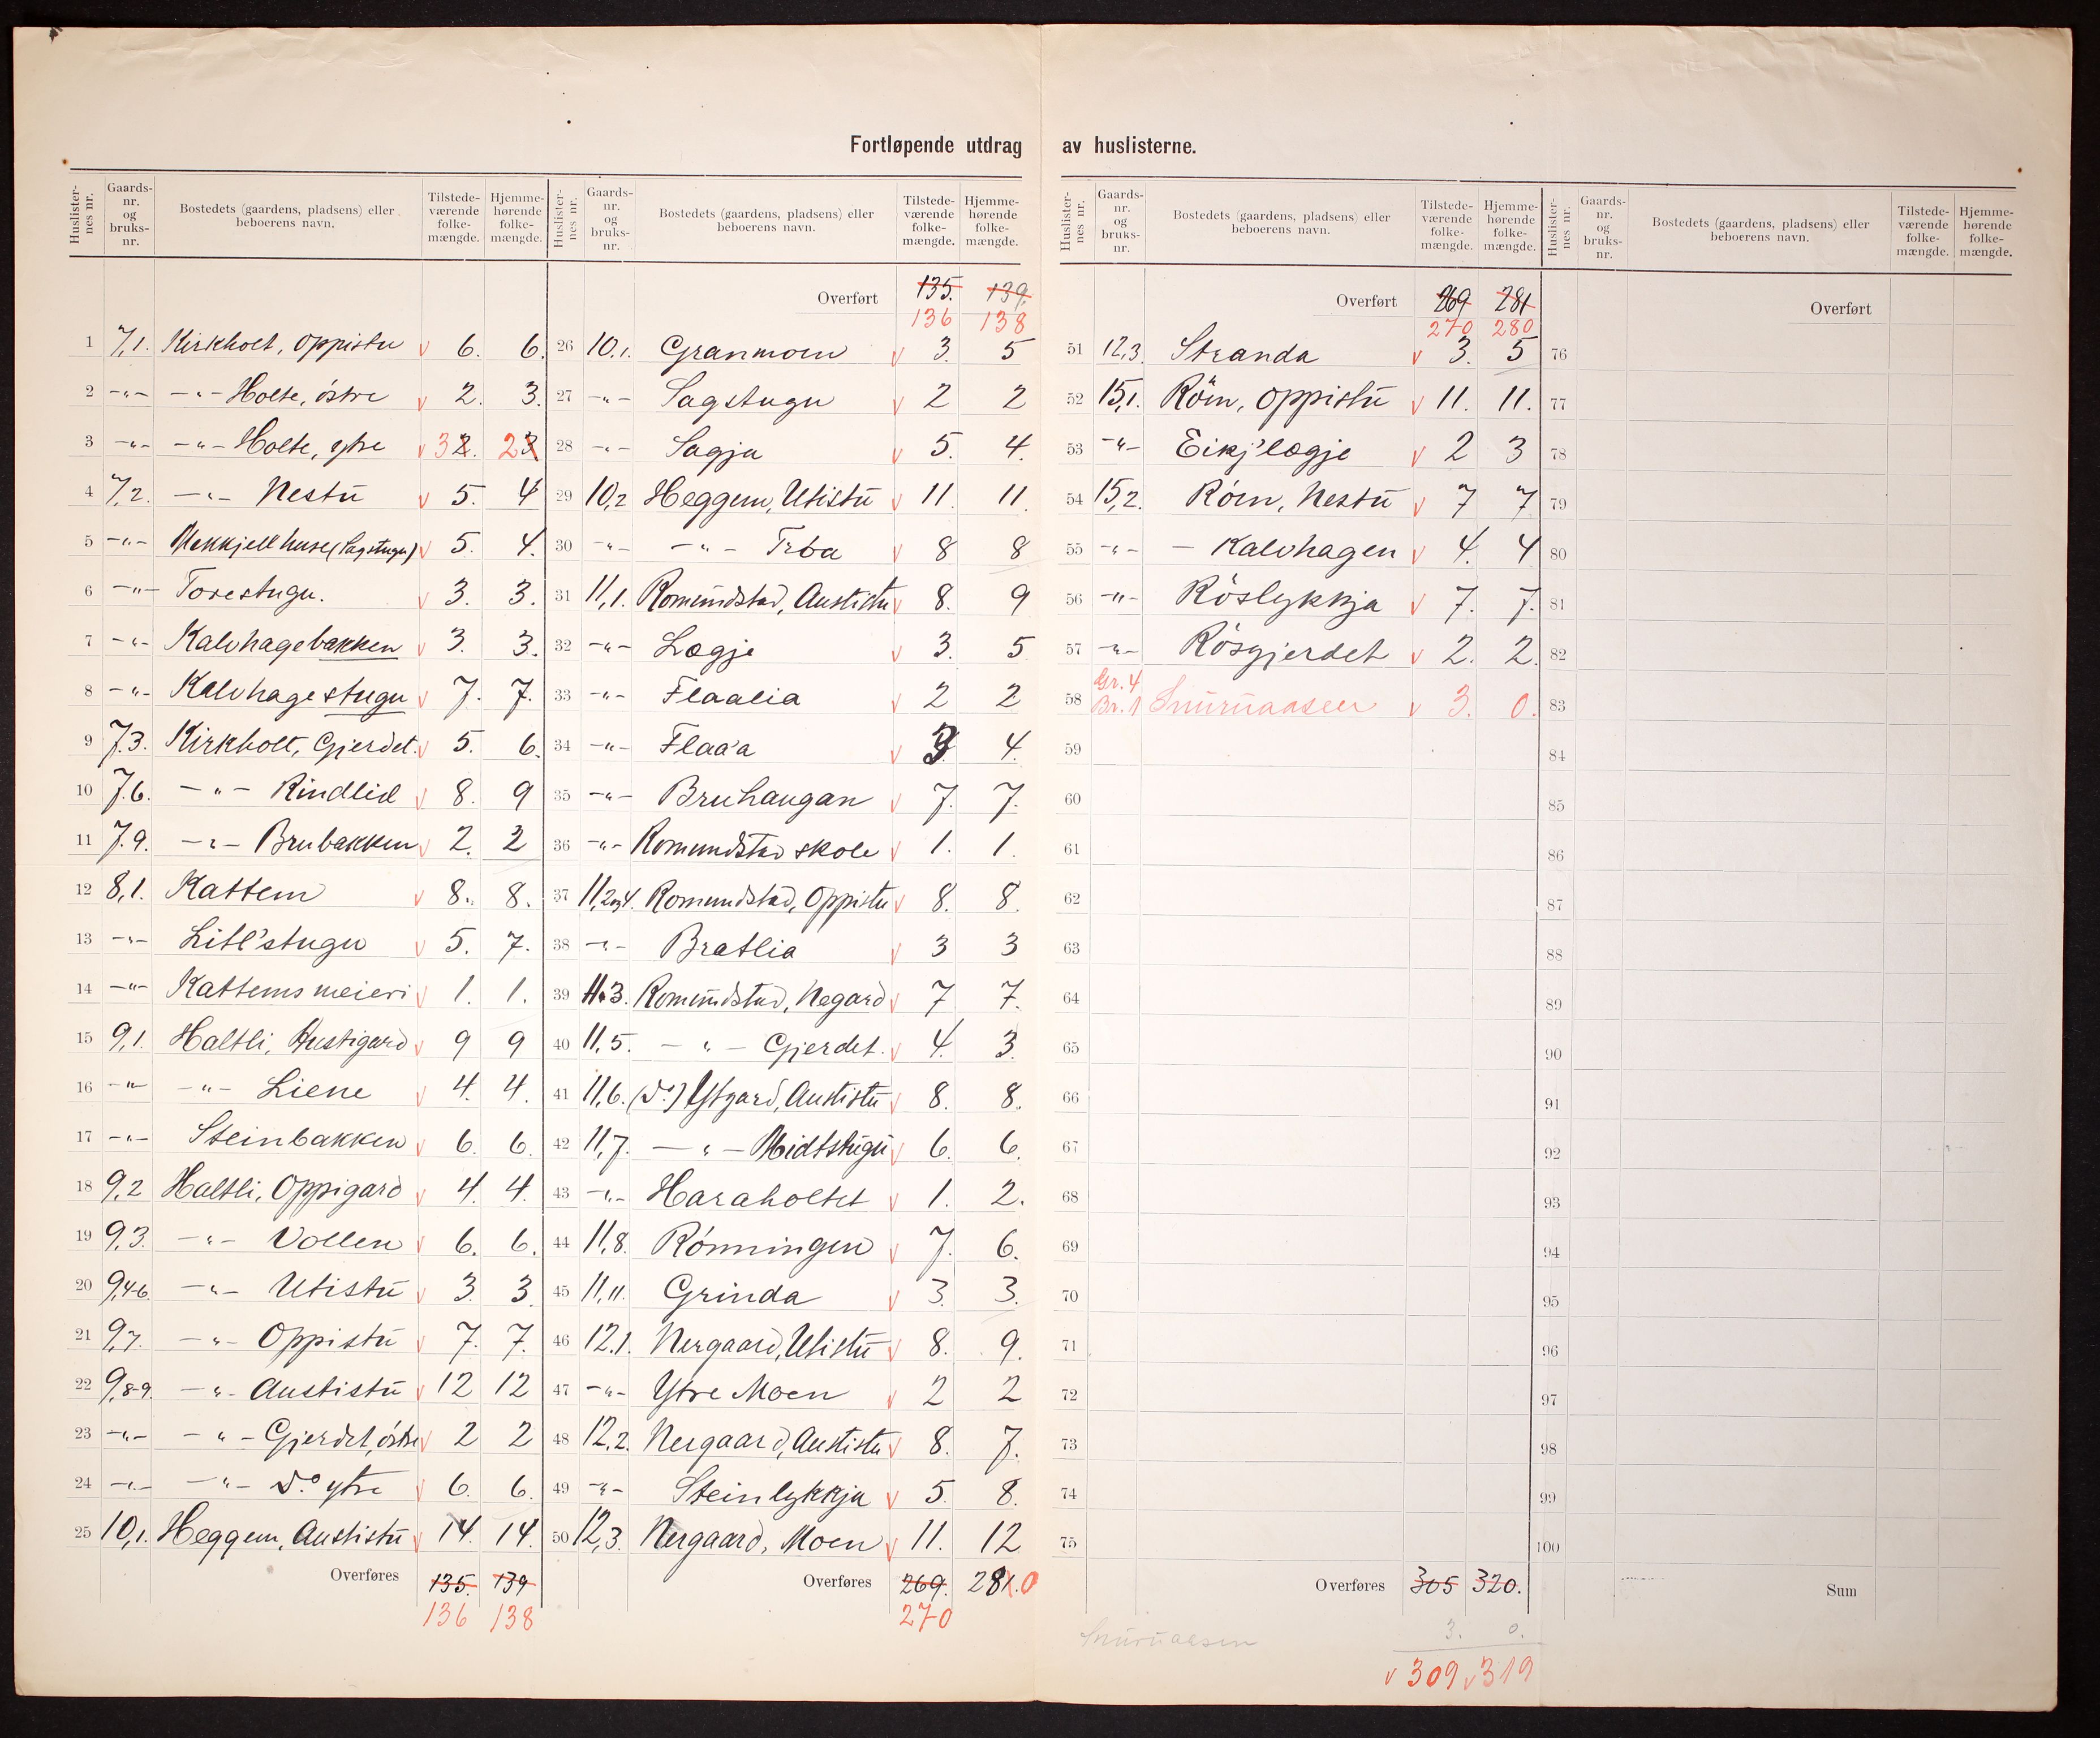 Fortløpende utdrag av huslisterne.
Huslisternes nr. Gaards-nr. og bruks-nr. Bostedets (gaardens, pladsens) eller beboerens navn. Tilstedeværende folkemængde. Hjemmehørende folkemængde.
1 7,1. Kirkholt, Oppistu v 6. 6.
2 -"- -"- Holte, östre v 2. 3.
3 -"- -"- Holte, ytre v 3 2. 2 3
4 7,2. -"- Nestu v 5. 4
5 -"- Mekkjellhuse (Sagstugu) v 5. 4.
6 -"- Torestugu. v 3. 3.
7 -"- Kalvhagebakken v 3. 3.
8 -"- Kalvhagestugu v 7. 7.
9 7.3. Kirkholt, Gjerdet. v 5. 6.
10 7.6. -"- Rindlid v 8. 9
11 7.9. -"- Brubakken v 2. 2
12 8,1. Kattem v 8. 8.
13 -"- Litl'stugu v 5. 7.
14 -"- Kattems meieri v 1. 1.
15 9,1. Haltli, Austigard v 9 9
16 -"- -"- Liene v 4. 4.
17 -"- Steinbakken v 6. 6.
18 9,2 Haltli, Oppigard v 4. 4.
19 9,3. -"- Vollen v 6. 6.
20 9,4-6. -"- Utistu v 3. 3.
21 9,7. -"- Oppistu v 7. 7.
22 9,8-9. -"- Austistu v 12 12
23 -"- -"- Gjerdet, östre v 2 2
24 -"- -"- Do ytre v 6. 6.
25 10,1. Heggem, Austistu v 14. 14.
Overføres 135. 139
136 138
Huslisternes nr. Gaards-nr. og bruks-nr. Bostedets (gaardens, pladsens) eller beboerens navn. Tilstedeværende folkemængde. Hjemmehørende folkemængde.
Overført 135. 139.
136 138
26 10.1. Granmoen v 3. 5
27 -"- Sagstugu v 2 2
28 -"- Sagja v 5. 4.
29 10,2 Heggem, Utistu v 11. 11.
30 -"- -"- Trøa v 8 8
31 11,1. Romundstad, Austistu v 8. 9
32 -"- Lægje v 3. 5
33 -"- Flaalia v 2 2
34 -"- Flaa'a v 3. 4.
35 -"- Bruhaugan v 7. 7.
36 -"- Romundstad skole v 1. 1.
37 11,2og4. Romundstad, Oppistu v 8. 8.
38 -"- Bratlia v 3 3
39 11.3. Romundstad, Negard v 7 7.
40 11,5. -"- Gjerdet. v 4. 3.
41 11,6. (Do) Ystgard, Austistu v 8. 8.
42 11,7. -"- Midtstugu v 6. 6.
43 -"- Haraholtet v 1. 2.
44 11,8. Rönningen v 7. 6.
45 11,11. Grinda v 3. 3.
46 12.1. Nergaard, Utistu v 8. 9.
47 -"- Ytre Moen v 2 2
48 12,2. Nergaard, Austistu v 8. 7.
49 -"- Steinlykkja v 5. 8.
50 12,3. Nergaard, Moen v 11. 12
Overføres 269. 281. 0
270
Huslisternes nr. Gaards-nr. og bruks-nr. Bostedets (gaardens, pladsens) eller beboerens navn. Tilstedeværende folkemængde. Hjemmehørende folkemængde.
Overført 269 281
270 280
51 12,3. Stranda v 3. 5
52 15,1. Röen, Oppistu v 11. 11.
53 -"- Eikj'lægje v 2 3
54 15,2. Röen, Nestu v 7 7
55 -"- - Kalvhagen v 4. 4
56 -"- Röslykkja v 7. 7.
57 -"- Rösgjerdet v 2. 2.
58 Gr. 4 Br. 1 Snuruaasen v 3. 0.
59
60
61
62
63
64
65
66
67
68
69
70
71
72
73
74
75
Overføres 305 320.
Snuruaasen 3. 0.
v 309 v 319
Huslisternes nr. Gaards-nr. og bruks-nr. Bostedets (gaardens, pladsens) eller beboerens navn. Tilstedeværende folkemængde. Hjemmehørende folkemængde.
Overført
76
77
78
79
80
81
82
83
84
85
86
87
88
89
90
91
92
93
94
95
96
97
98
99
100
Sum